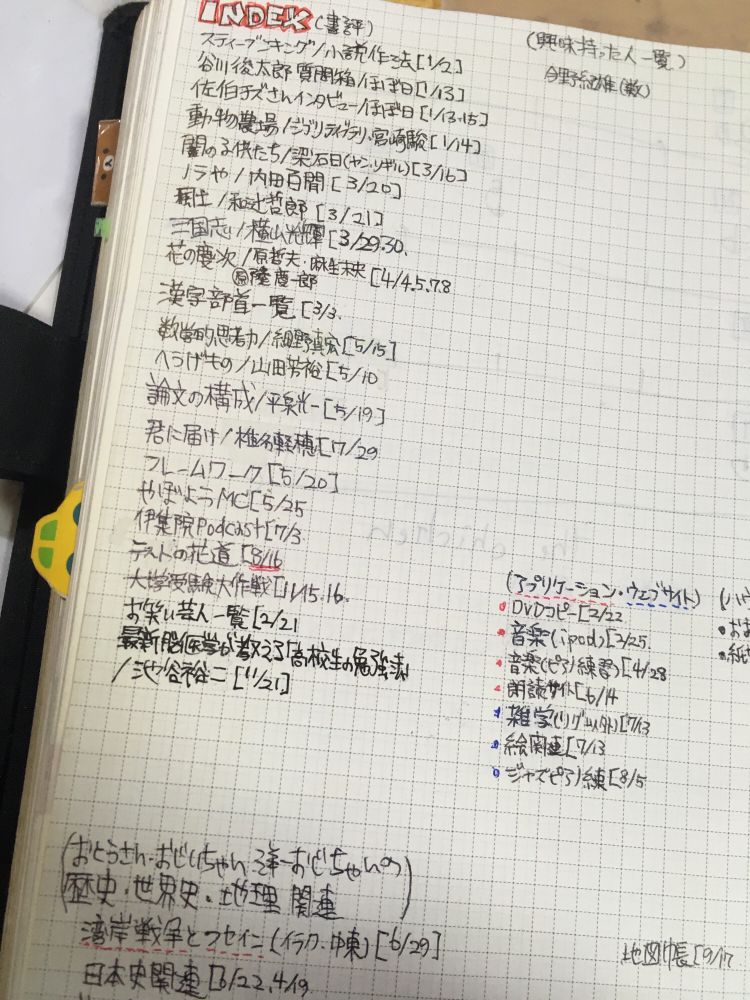 INDEX (書評)
スティーブンキング/小説作る法[1/2]
谷川俊太郎 質問箱/ほぼ日[1/13]
佐伯チズさんインタビュー/ほぼ日[1/13.15]
動物農場/ジブリライブラリ・宮崎駿[1/14]
闇の子供たち/梁石日(ヤン・ソギル)[3/16]
ノラや/内田百閒[3/20]
風土/和辻哲郎[3/21]
三国志/横山光輝[3/29.30.
花の慶次/原哲夫・麻生未央[4/4.5.7.8
原 隆慶一郎
漢字部首一覧[3/3.
数学的思考力/細野真宏[5/15]
へうげもの/山田芳裕[5/10
論文の構成/平泉光一[5/19]
君に届け/椎名軽穂[7/29
フレームワーク[5/20]
やぼようMC[5/25
伊集院Podcast[7/3
テストの花道[8/16
大学受験大作戦[11/15.16.
お笑い芸人一覧[2/21
最新脳医学が教える高校生の勉強法
/池谷裕二[11/21]
(興味持った人一覧)
今野紀雄(数)
The chicken
(アプリケーション・ウェブサイト)
DVDコピー[2/22
音楽(ipod)[2/25.
音楽(ピアノ練習)[4/28
朗読サイト[6/14
雑学(リグ以外)[7/13
絵関連[7/13
ジャズピアノ練[8/5
(おとうさん・おじいちゃん・洋一おじちゃんの
歴史・世界史・地理 関連)
湾岸戦争とフセイン(イラク・中東)[6/29]
日本史関連[6/22.4/19
地図帳[9/17